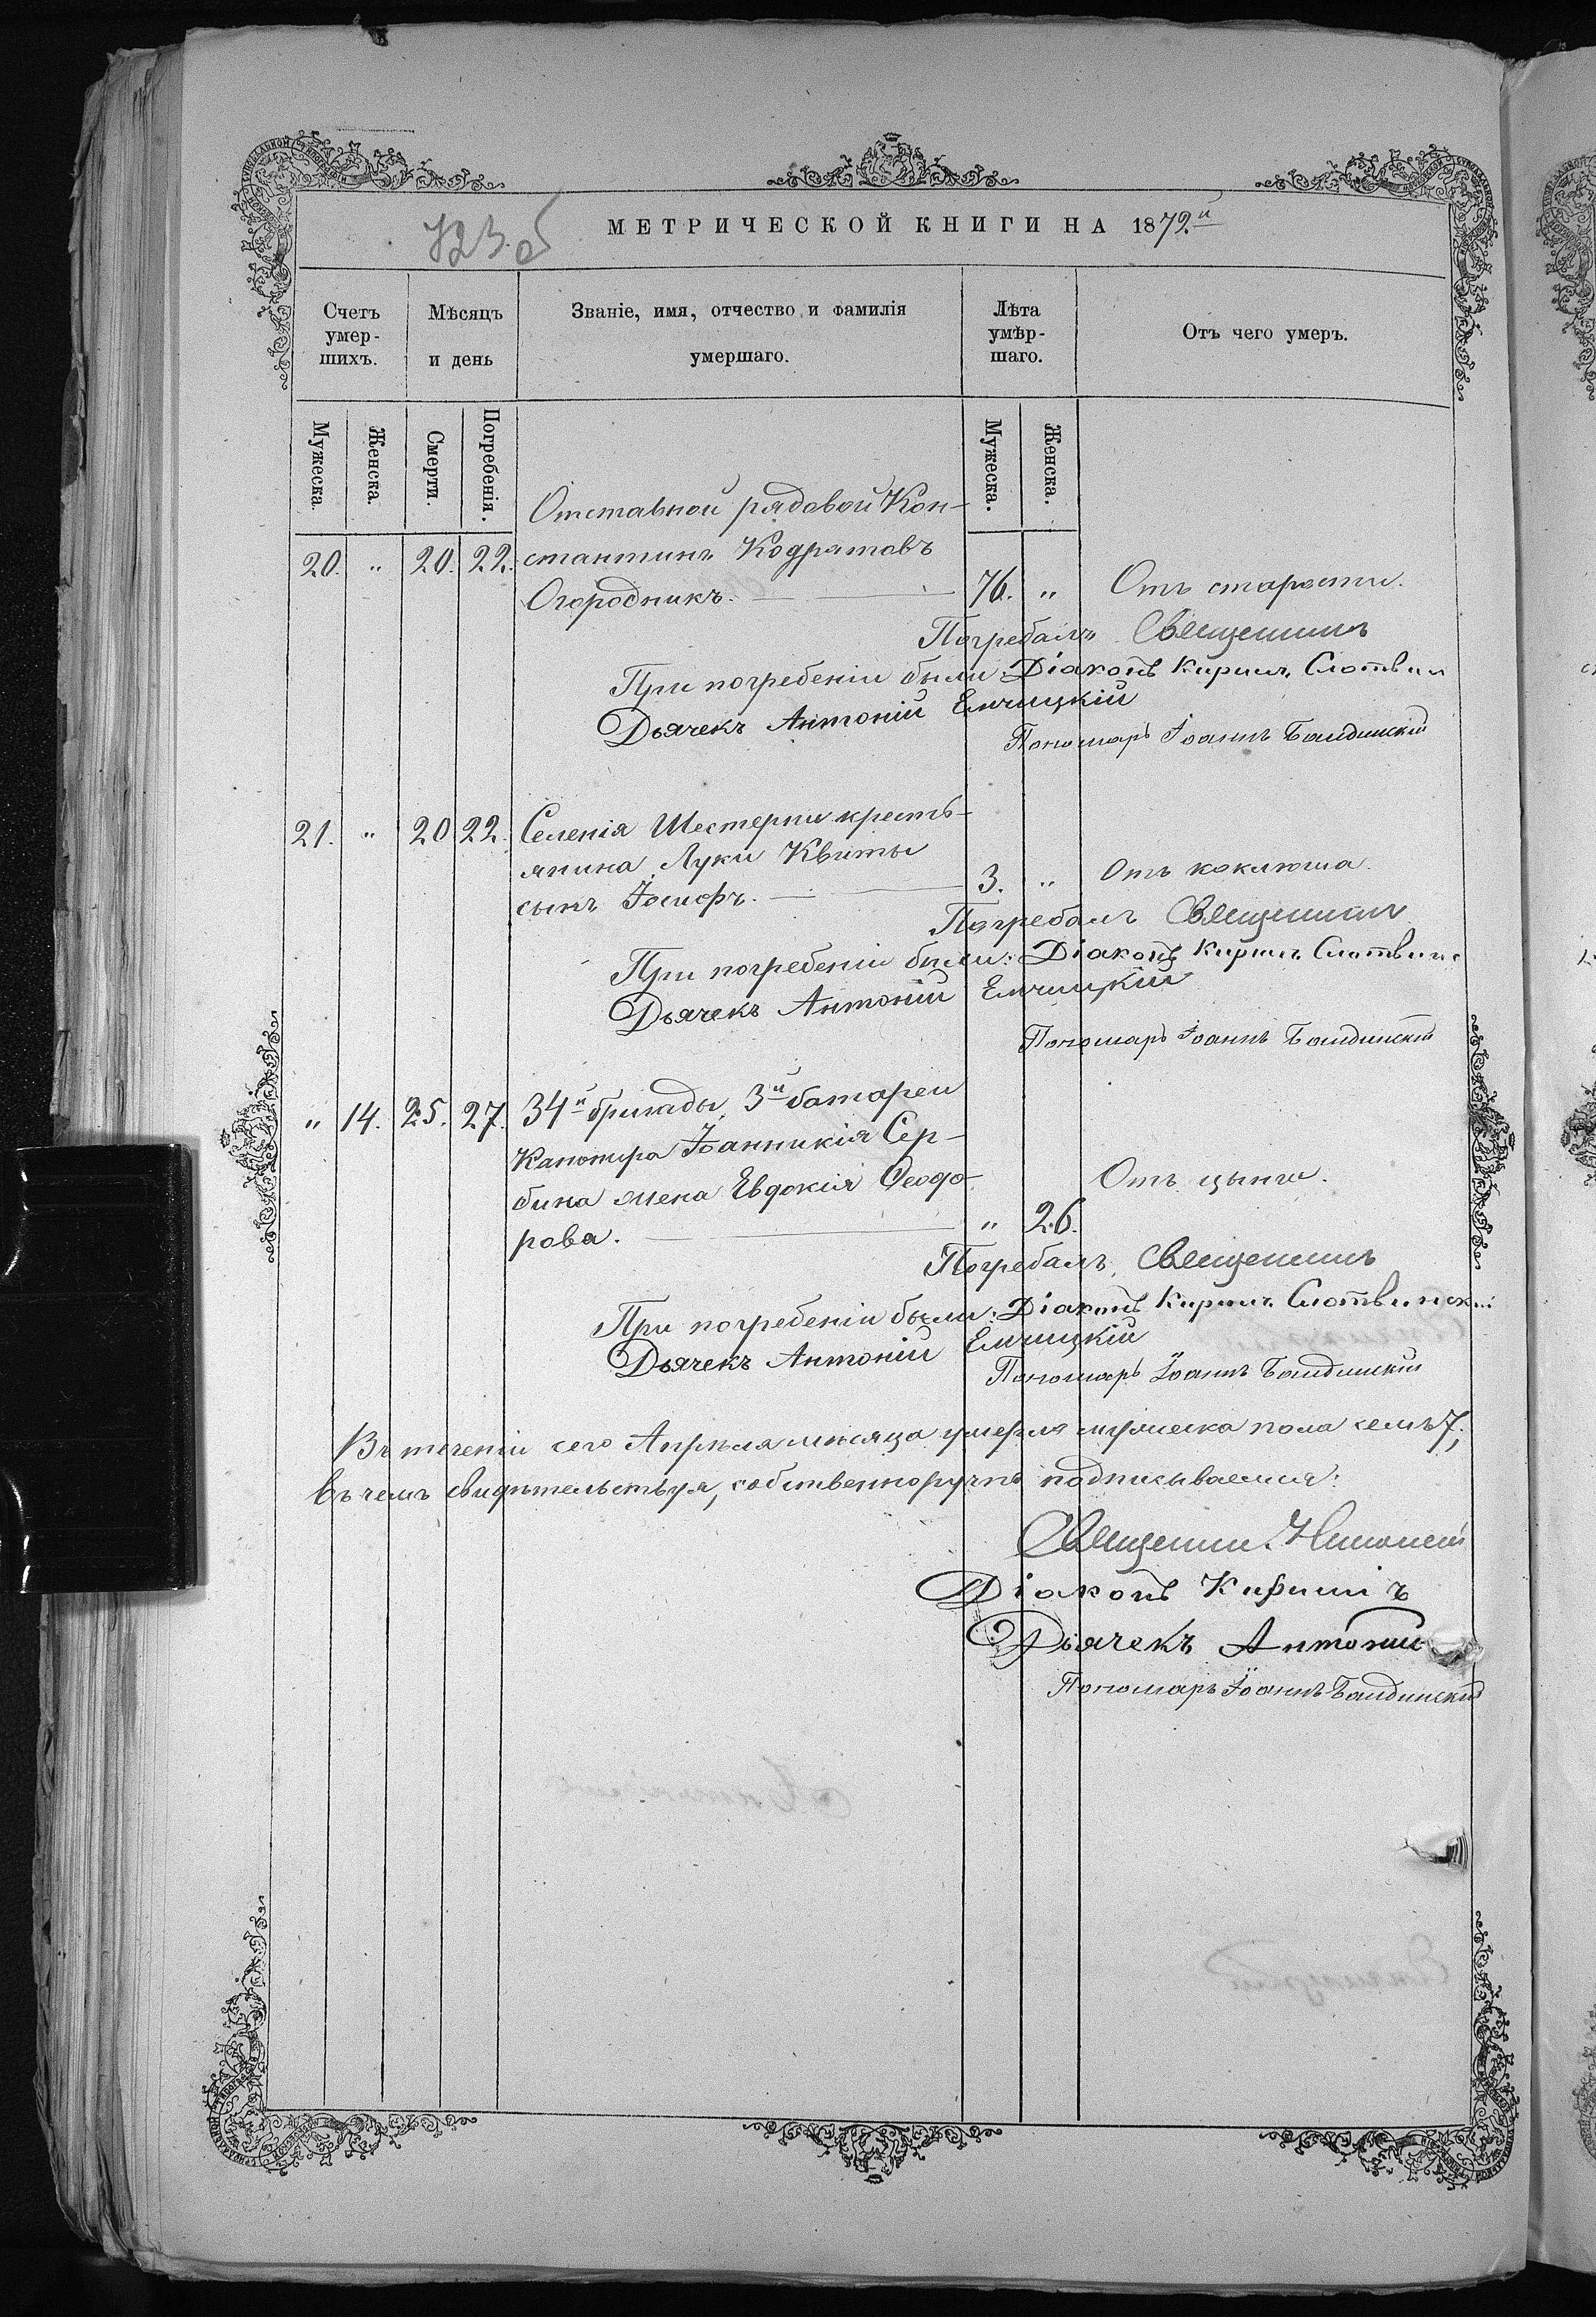 723 об
МЕТРИЧЕСКОЙ КНИГИ НА 1872.й
Счетъ умерших.
Мѣсяцъ и день
Званіе, имя, отчество и фамилія умершаго.
Лѣта умѣршаго.
Отъ чего умеръ.
Мужеска.
Женска.
Смерти.
Погребенія.
Мужеска.
Женска.
Отставной рядовой Кон-
20. „ 20. 22. стантинъ Кодратовъ
Огородникъ. — 76. „ Отъ старости.
Погребалъ Священникъ
При погребеніи были: Діаконъ Кирилъ Слотвин
Дьячекъ Антоній Елчицкій
Пономарь Іоаннъ Балдинскій
21. „ 20 22. Селенія Шестерни кресть-
янина Луки Квиты
сынъ Іосифъ. — 3. „ Отъ коклюша.
Погребалъ Священник
При погребеніи были: Діаконъ Кирилъ Слотвинс
Дьячекъ Антоній Елчицкій
Пономарь Іоаннъ Балдинскій
„ 14. 25. 27. 34й бригады, 3й батареи
Канонира Іоанникія Сер-
бина жена Евдокія Ѳеодо- Отъ цынги.
рова. — „ 26.
Погребалъ Священникъ
При погребеніи были: Діаконъ Кирилъ Слотвинскій
Дьячекъ Антоній Елчицкій
Пономарь Іоаннъ Балдинскій
Въ теченіи сего Апрѣля мѣсяца умерло мужеска пола семь 7,
въ чемъ свидѣтельствуя, собственноручно подписываемся:
Священник Николай
Діаконъ Кирилъ
Дьячекъ Антоній
Пономарь Іоаннъ Балдинскій